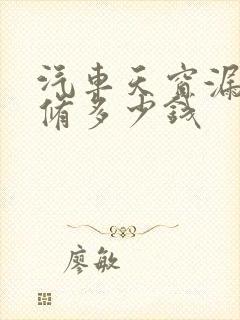 汽車天窗漏
脩多少錢
廖敏